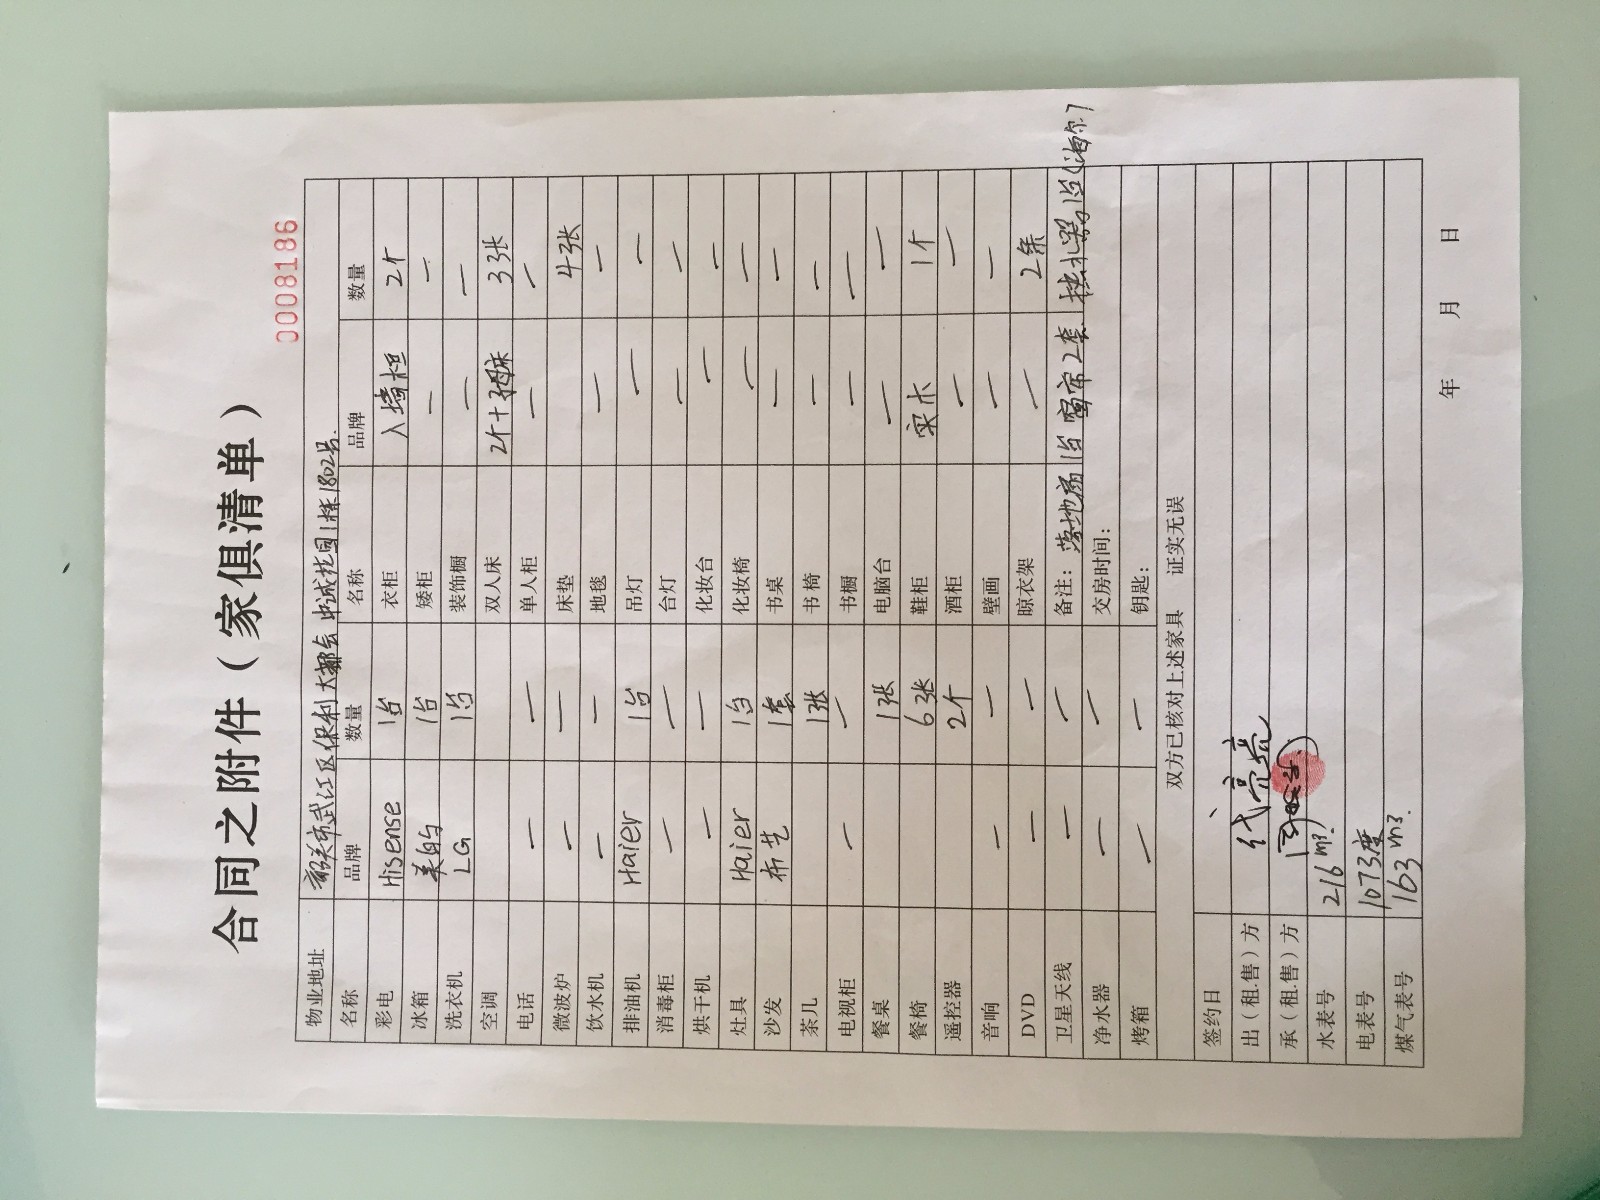 合同之附件（家俱清单）
0008186
物业地址 韶关市武江区保利大都会中诚花园1栋1802号.
名称 品牌 数量 名称 品牌 数量
彩电 Hisense 1台 衣柜 入墙柜 2个
冰箱 美的 1台 矮柜 — —
洗衣机 LG 1台 装饰橱 — —
空调 双人床 2个+子母床 3张
电话 — — 单人柜 — —
微波炉 — — 床垫 4张
饮水机 — — 地毯 — —
排油机 Haier 1台 吊灯 — —
消毒柜 — — 台灯 — —
烘干机 — — 化妆台 — —
灶具 Haier 1台 化妆椅 — —
沙发 布艺 1套 书桌 — —
茶几 1张 书椅 — —
电视柜 — — 书橱 — —
餐桌 1张 电脑台 — —
餐椅 6张 鞋柜 实木 1个
遥控器 2个 酒柜 — —
音响 — — 壁画 — —
DVD — — 晾衣架 — 2条
卫星天线 — — 备注：落地扇1台 窗帘2套. 热水器1台(海尔)
净水器 — — 交房时间：
烤箱 — — 钥匙：
双方已核对上述家具 证实无误
签约日
出（租.售）方 代亮亮
承（租.售）方
水表号 216m³.
电表号 1073度
煤气表号 163m³.
年 月 日